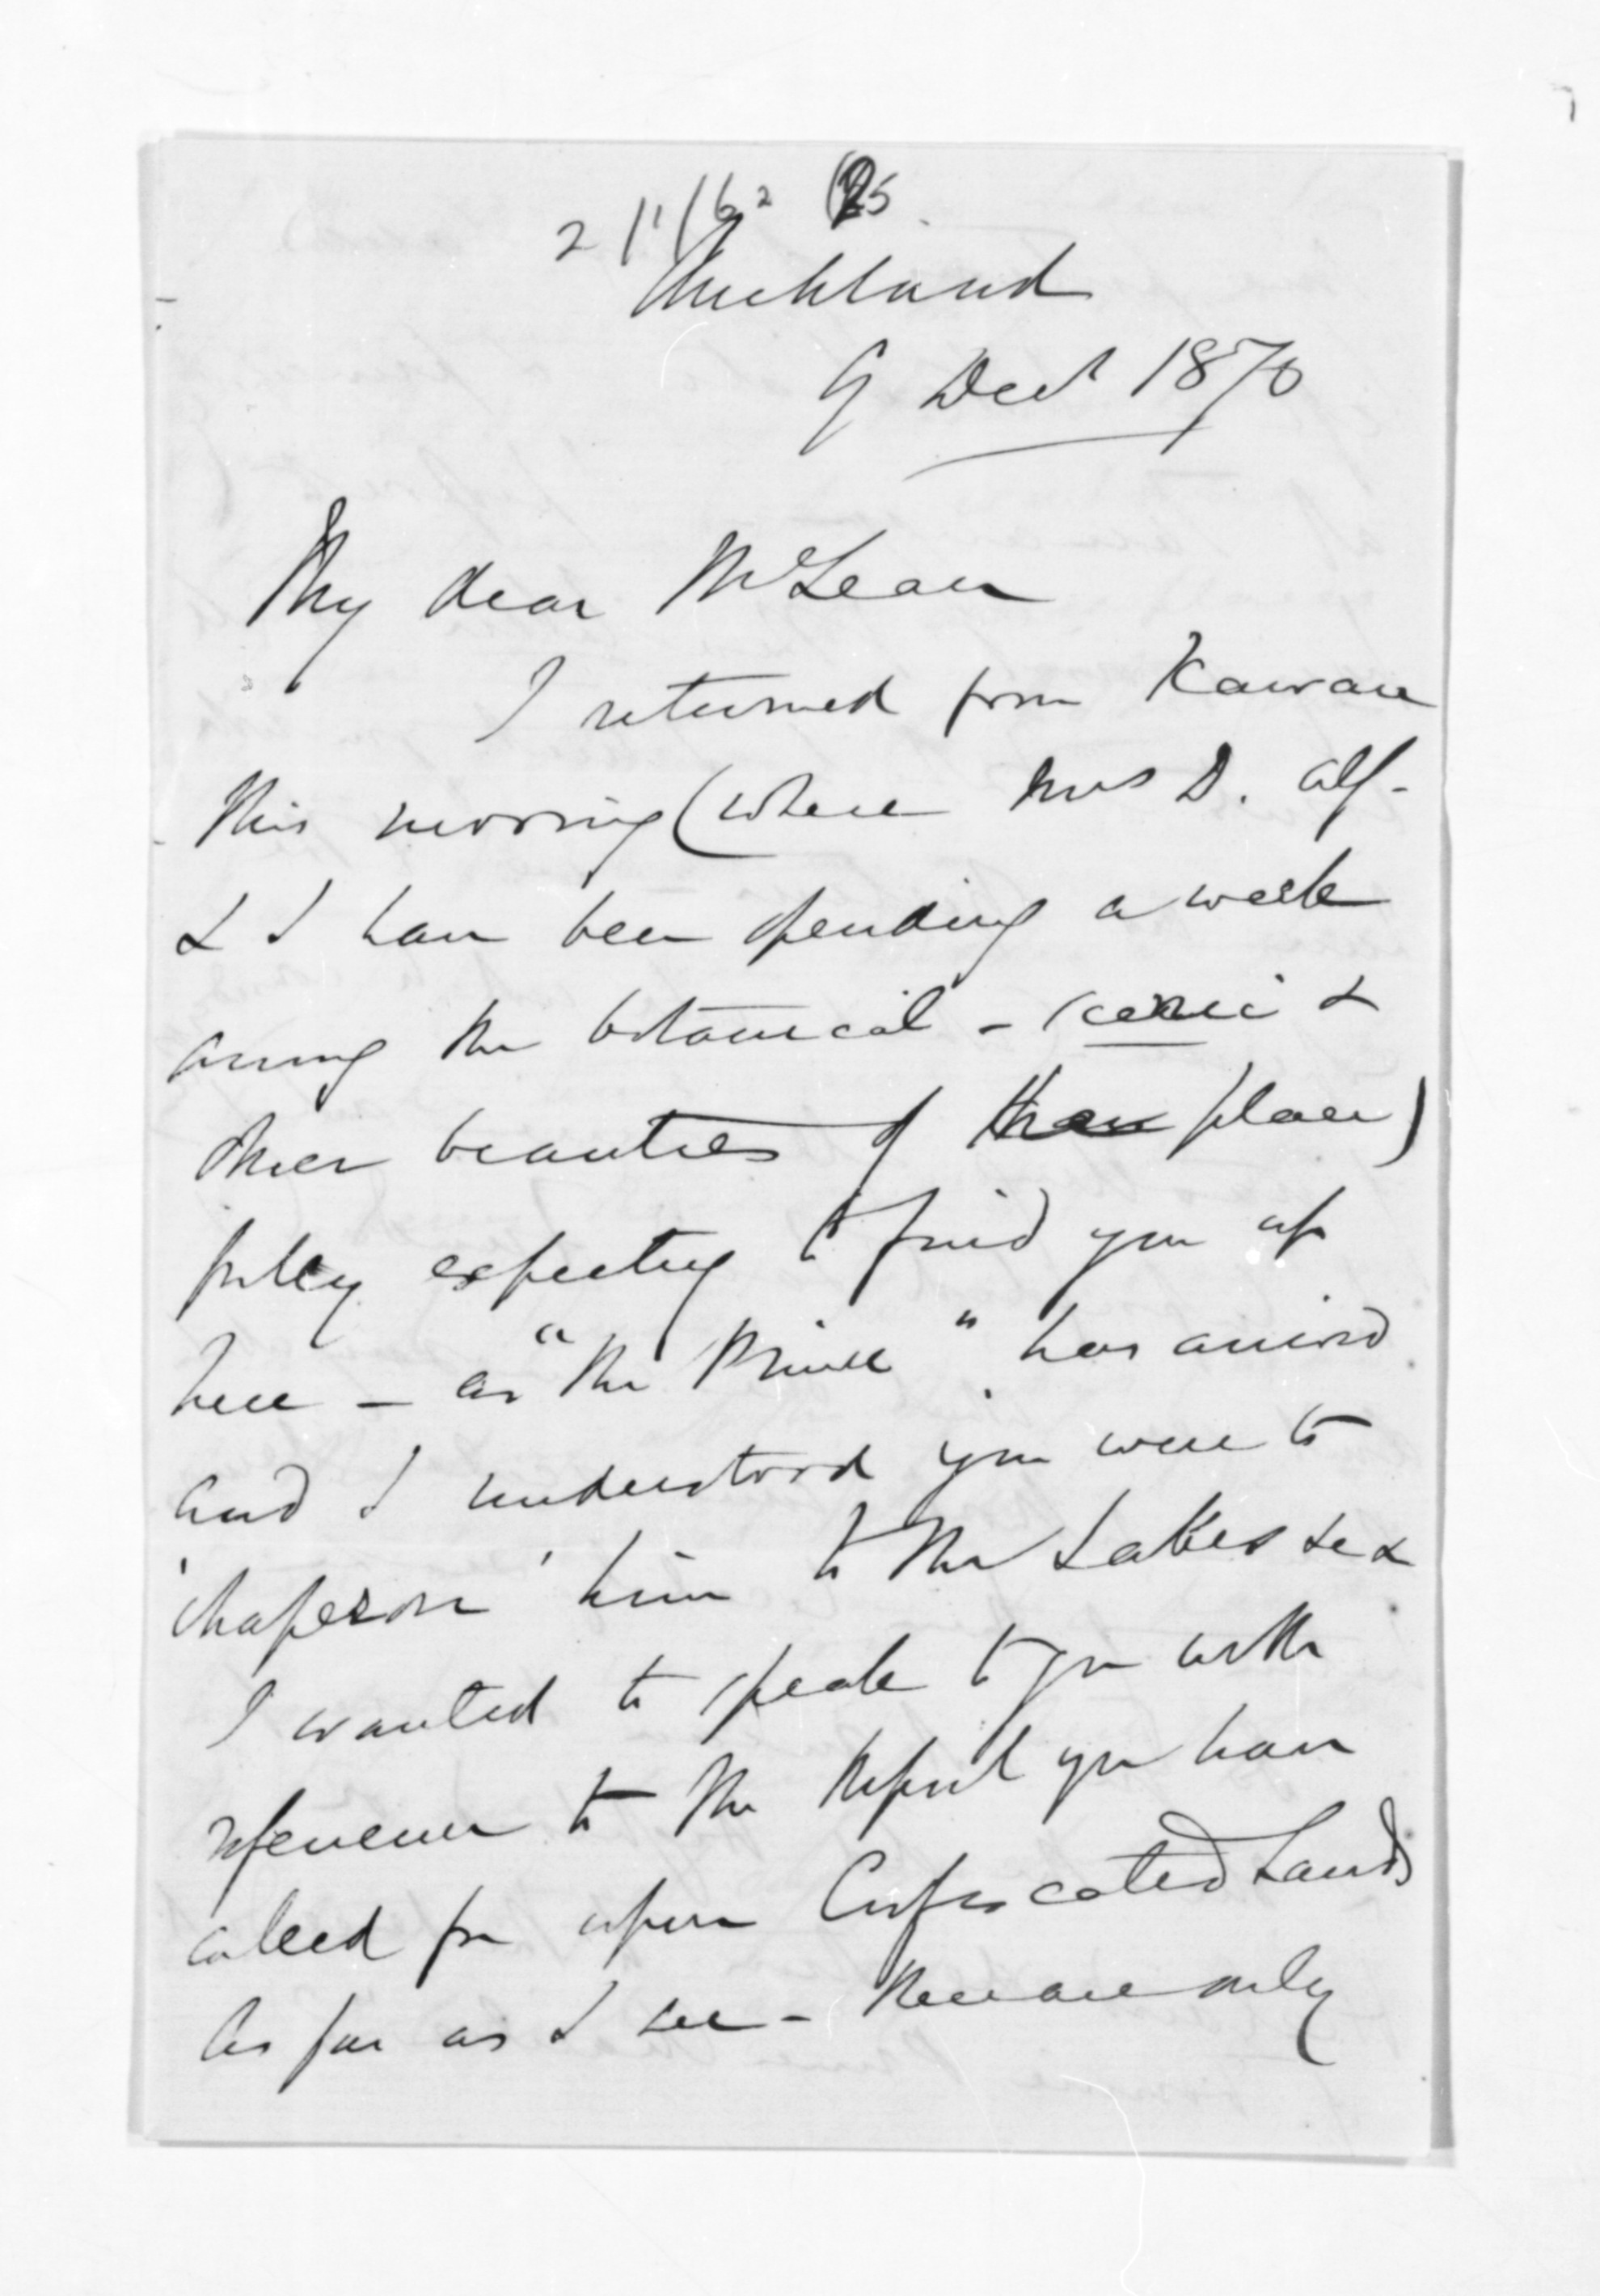 Auckland
9 Decr 1870
My dear McLean
I returned from Kawau
this morning (where Mrs D. Alf-
& I have been spending a week
among the botanical - scenic &
other beauties of the place)
fully expecting to find you up
here - as "the Prince" has arrived
and I understood you were to
'chaperon' him to the Lakes &c &
I wanted to speak to you with
reference to the Report you have
called for upon Confiscated Lands
As far as I see - there are only